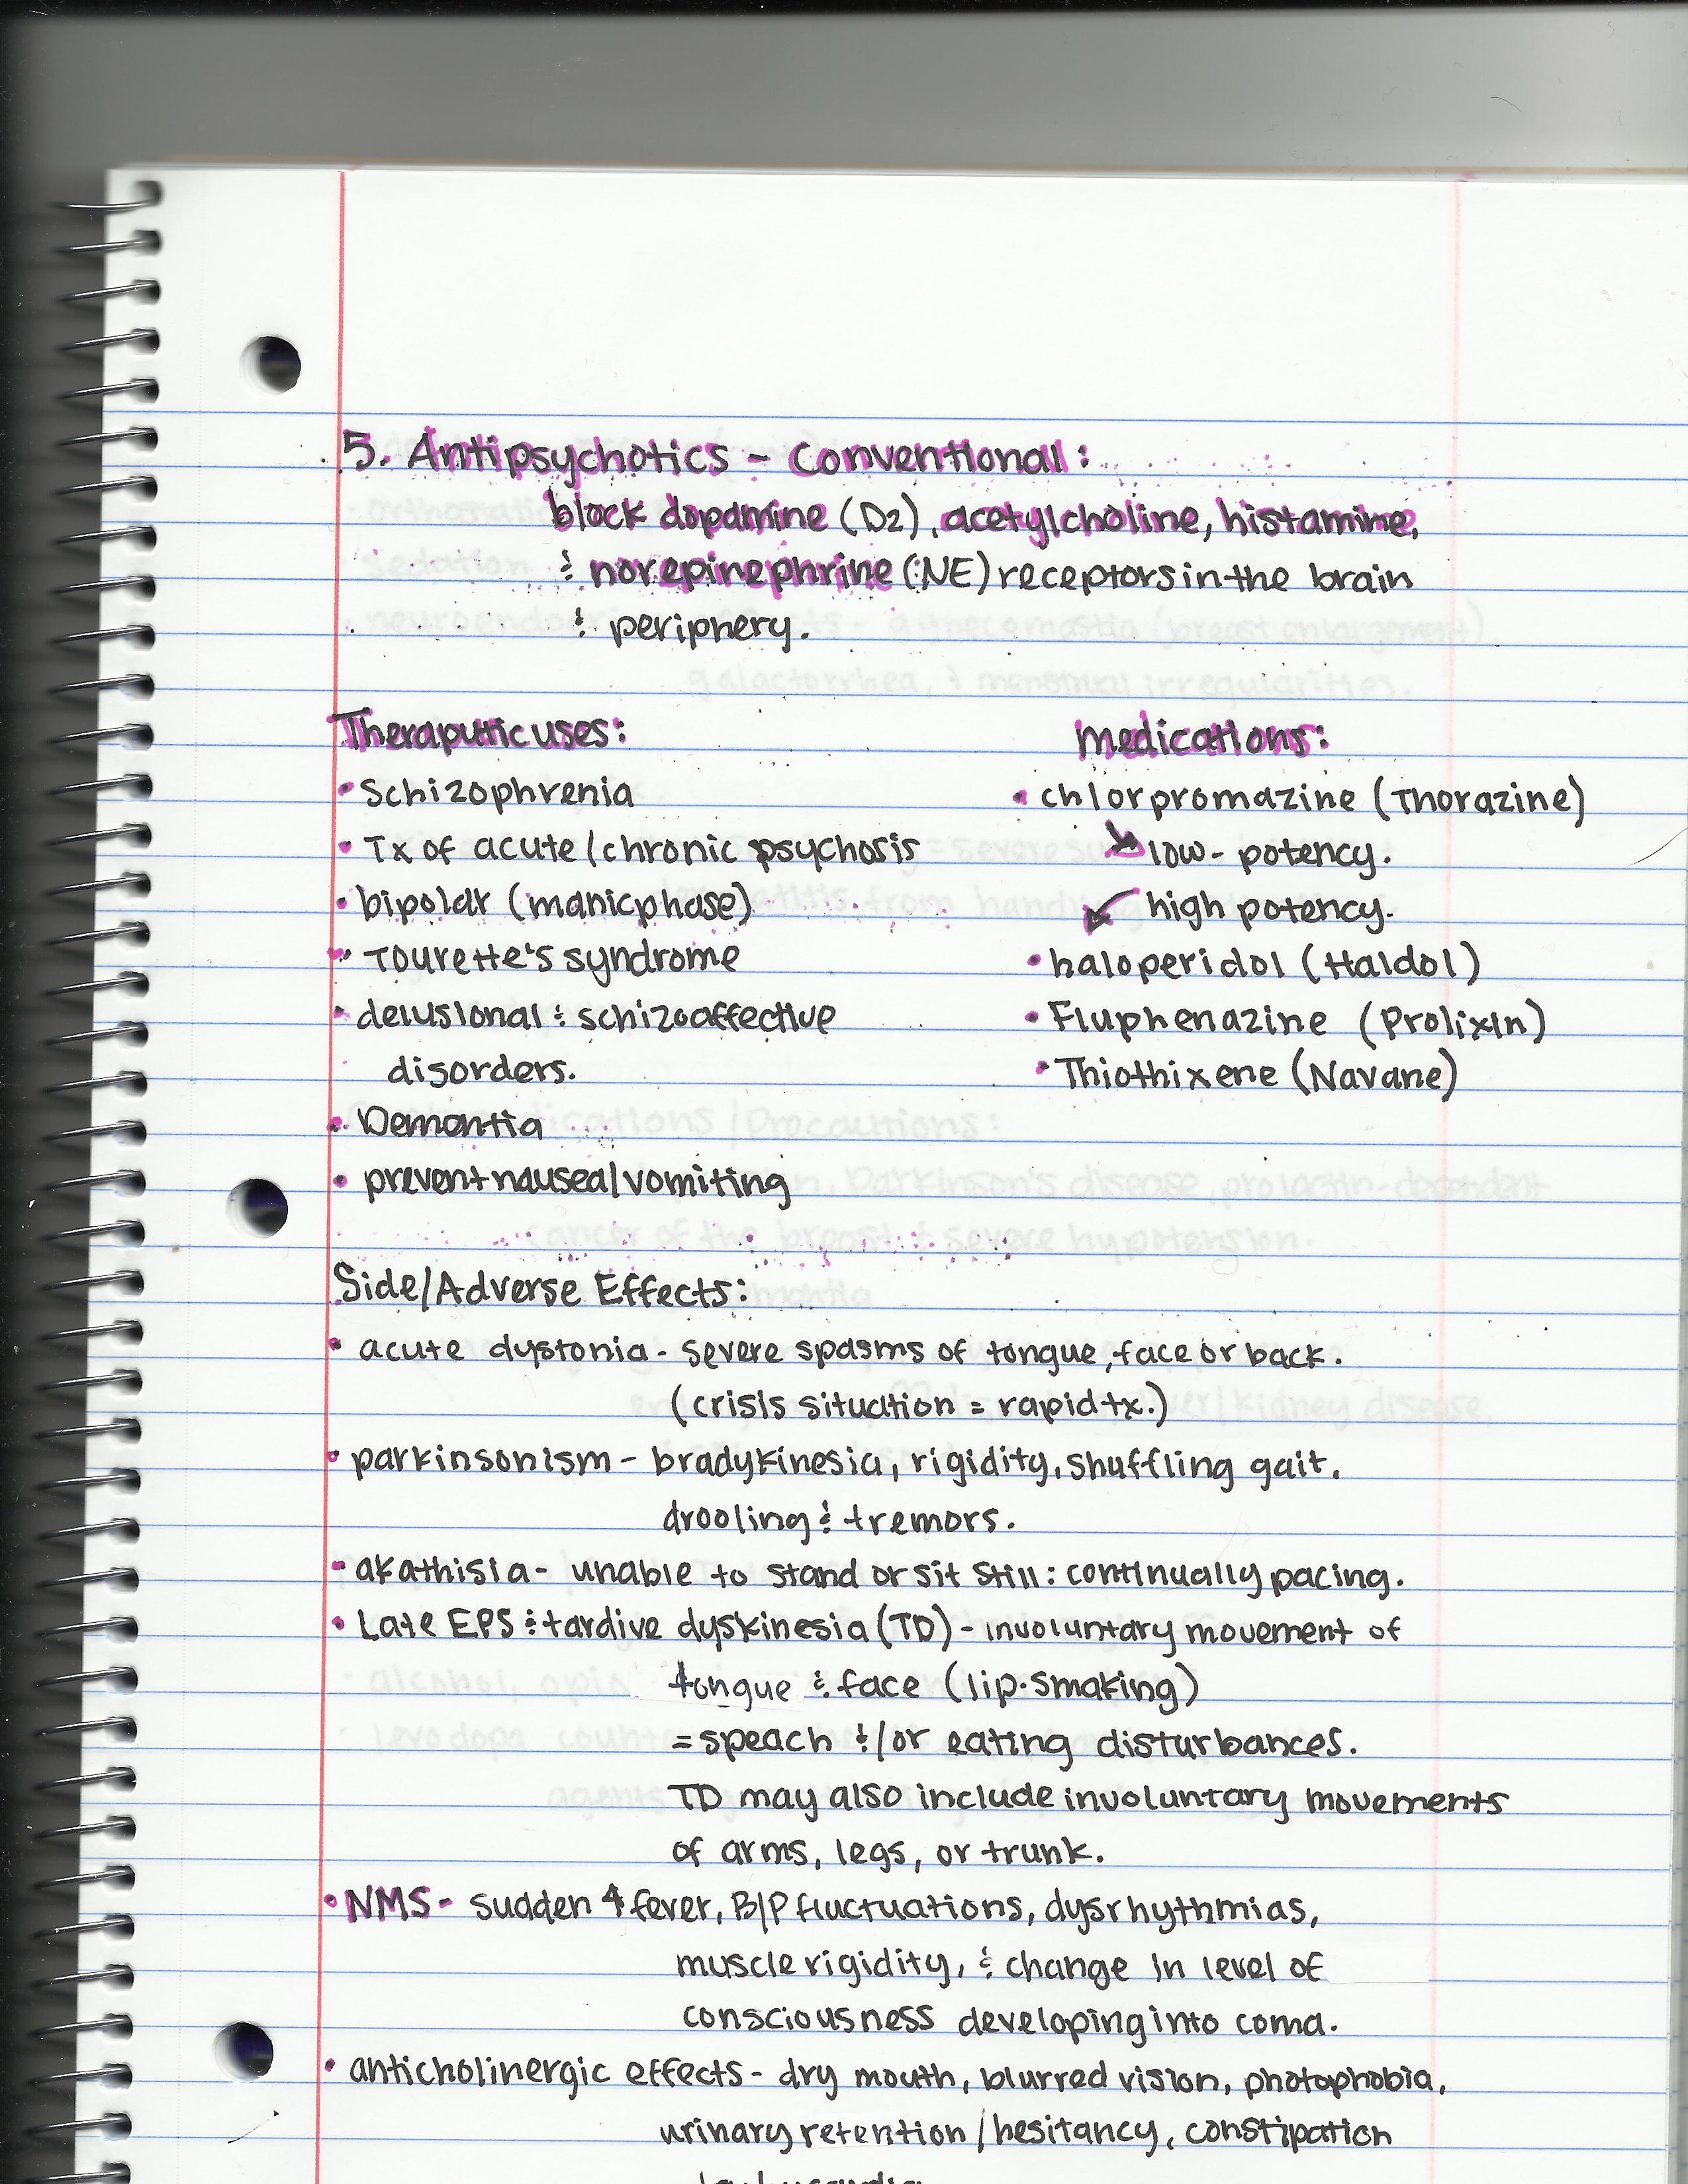 5. Antipsychotics - Conventional:
block dopamine (D2), acetylcholine, histamine,
& norepinephrine (NE) receptors in the brain
& periphery.
Theraputic uses:
• Schizophrenia
• Tx of acute/chronic psychosis
• bipolar (manic phase)
• Tourette's syndrome
• delusional & schizoaffective
disorders.
• Demantia
• prevent nausea/vomiting
Medications:
• chlorpromazine (Thorazine)
↘ low-potency.
↙ high potency.
• haloperidol (Haldol)
• Fluphenazine (Prolixin)
• Thiothixene (Navane)
Side/Adverse Effects:
• acute dystonia - severe spasms of tongue, face or back.
(crisis situation = rapid tx.)
• parkinsonism - bradykinesia, rigidity, shuffling gait,
drooling & tremors.
• akathisia - unable to stand or sit still: continually pacing.
• Late EPS & tardive dyskinesia (TD) - involuntary movement of
tongue & face (lip-smaking)
= speach &/or eating disturbances.
TD may also include involuntary movements
of arms, legs, or trunk.
• NMS - sudden ↑ fever, B/P fluctuations, dysrhythmias,
muscle rigidity, & change in level of
consciousness developing into coma.
• anticholinergic effects - dry mouth, blurred vision, photophobia,
urinary retention/hesitancy, constipation